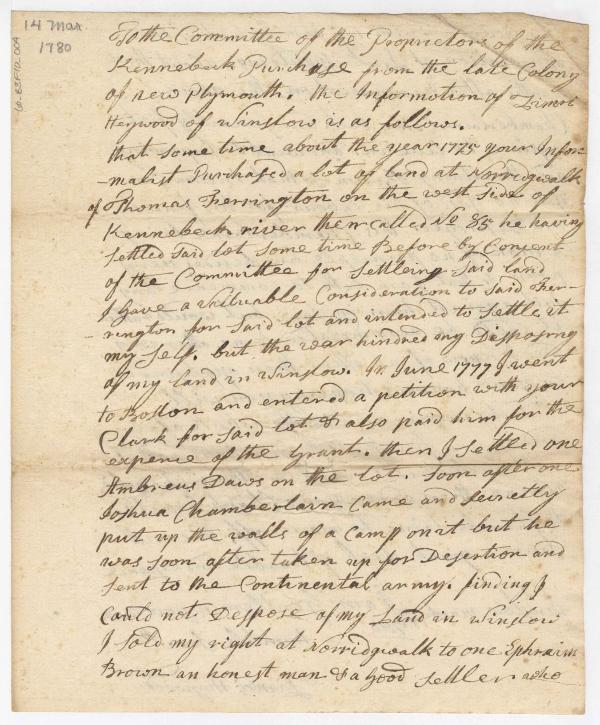 14 Mar
1780
To the Committee of the Proprietors of the
Kennebeck Purchase from the late Colony
of new Plymouth. the Information of Zimri
Heywood of Winslow is as follows.
that some time about the year 1775 your Infor-
-malist Purchased a lot of land at Norridgwalk
of Thomas Ferrington on the west side of
Kennebeck river then called No 85 he having
settled said lot some time Before by Consent
of the Committee for settleing said land
I Gave a valluable Consideration to said Fer-
-rington for said lot and intended to settle it
my self. but the war hindred my Disposing
of my land in Winslow. In June 1777 I went
to Boston and entered a petition with your
Clark for said lot & also paid him for the
expence of the Grant. then I settled one
Ambreus Daws on the lot. soon after one
Joshua Chamberlain Came and secretly
put up the walls of a Camp on it but he
was soon after taken up for Desertion and
sent to the Continental army. finding I
Could not Despose of my Land in Winslow
I sold my right at Norridgwalk to one Ephraim
Brown an honest man & a Good settler who